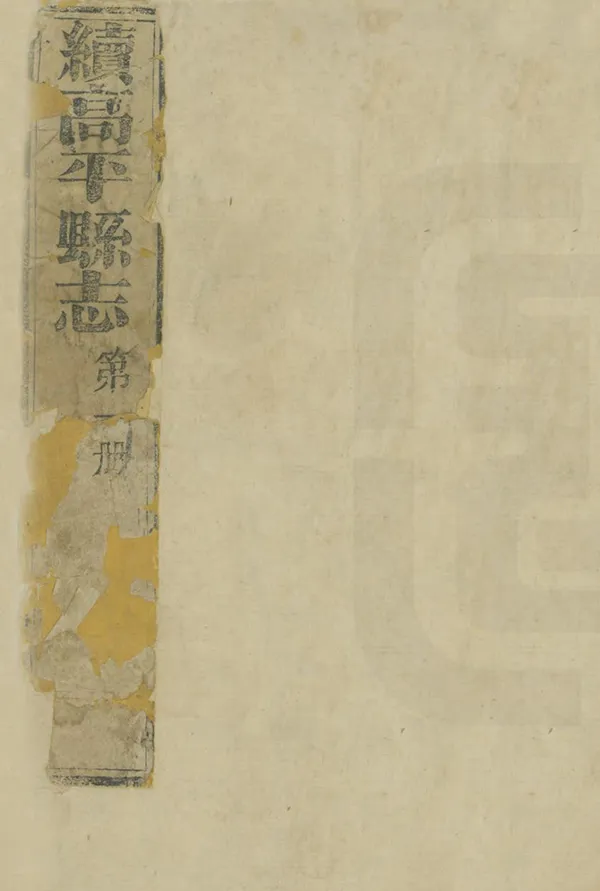 續高平縣志
第一册